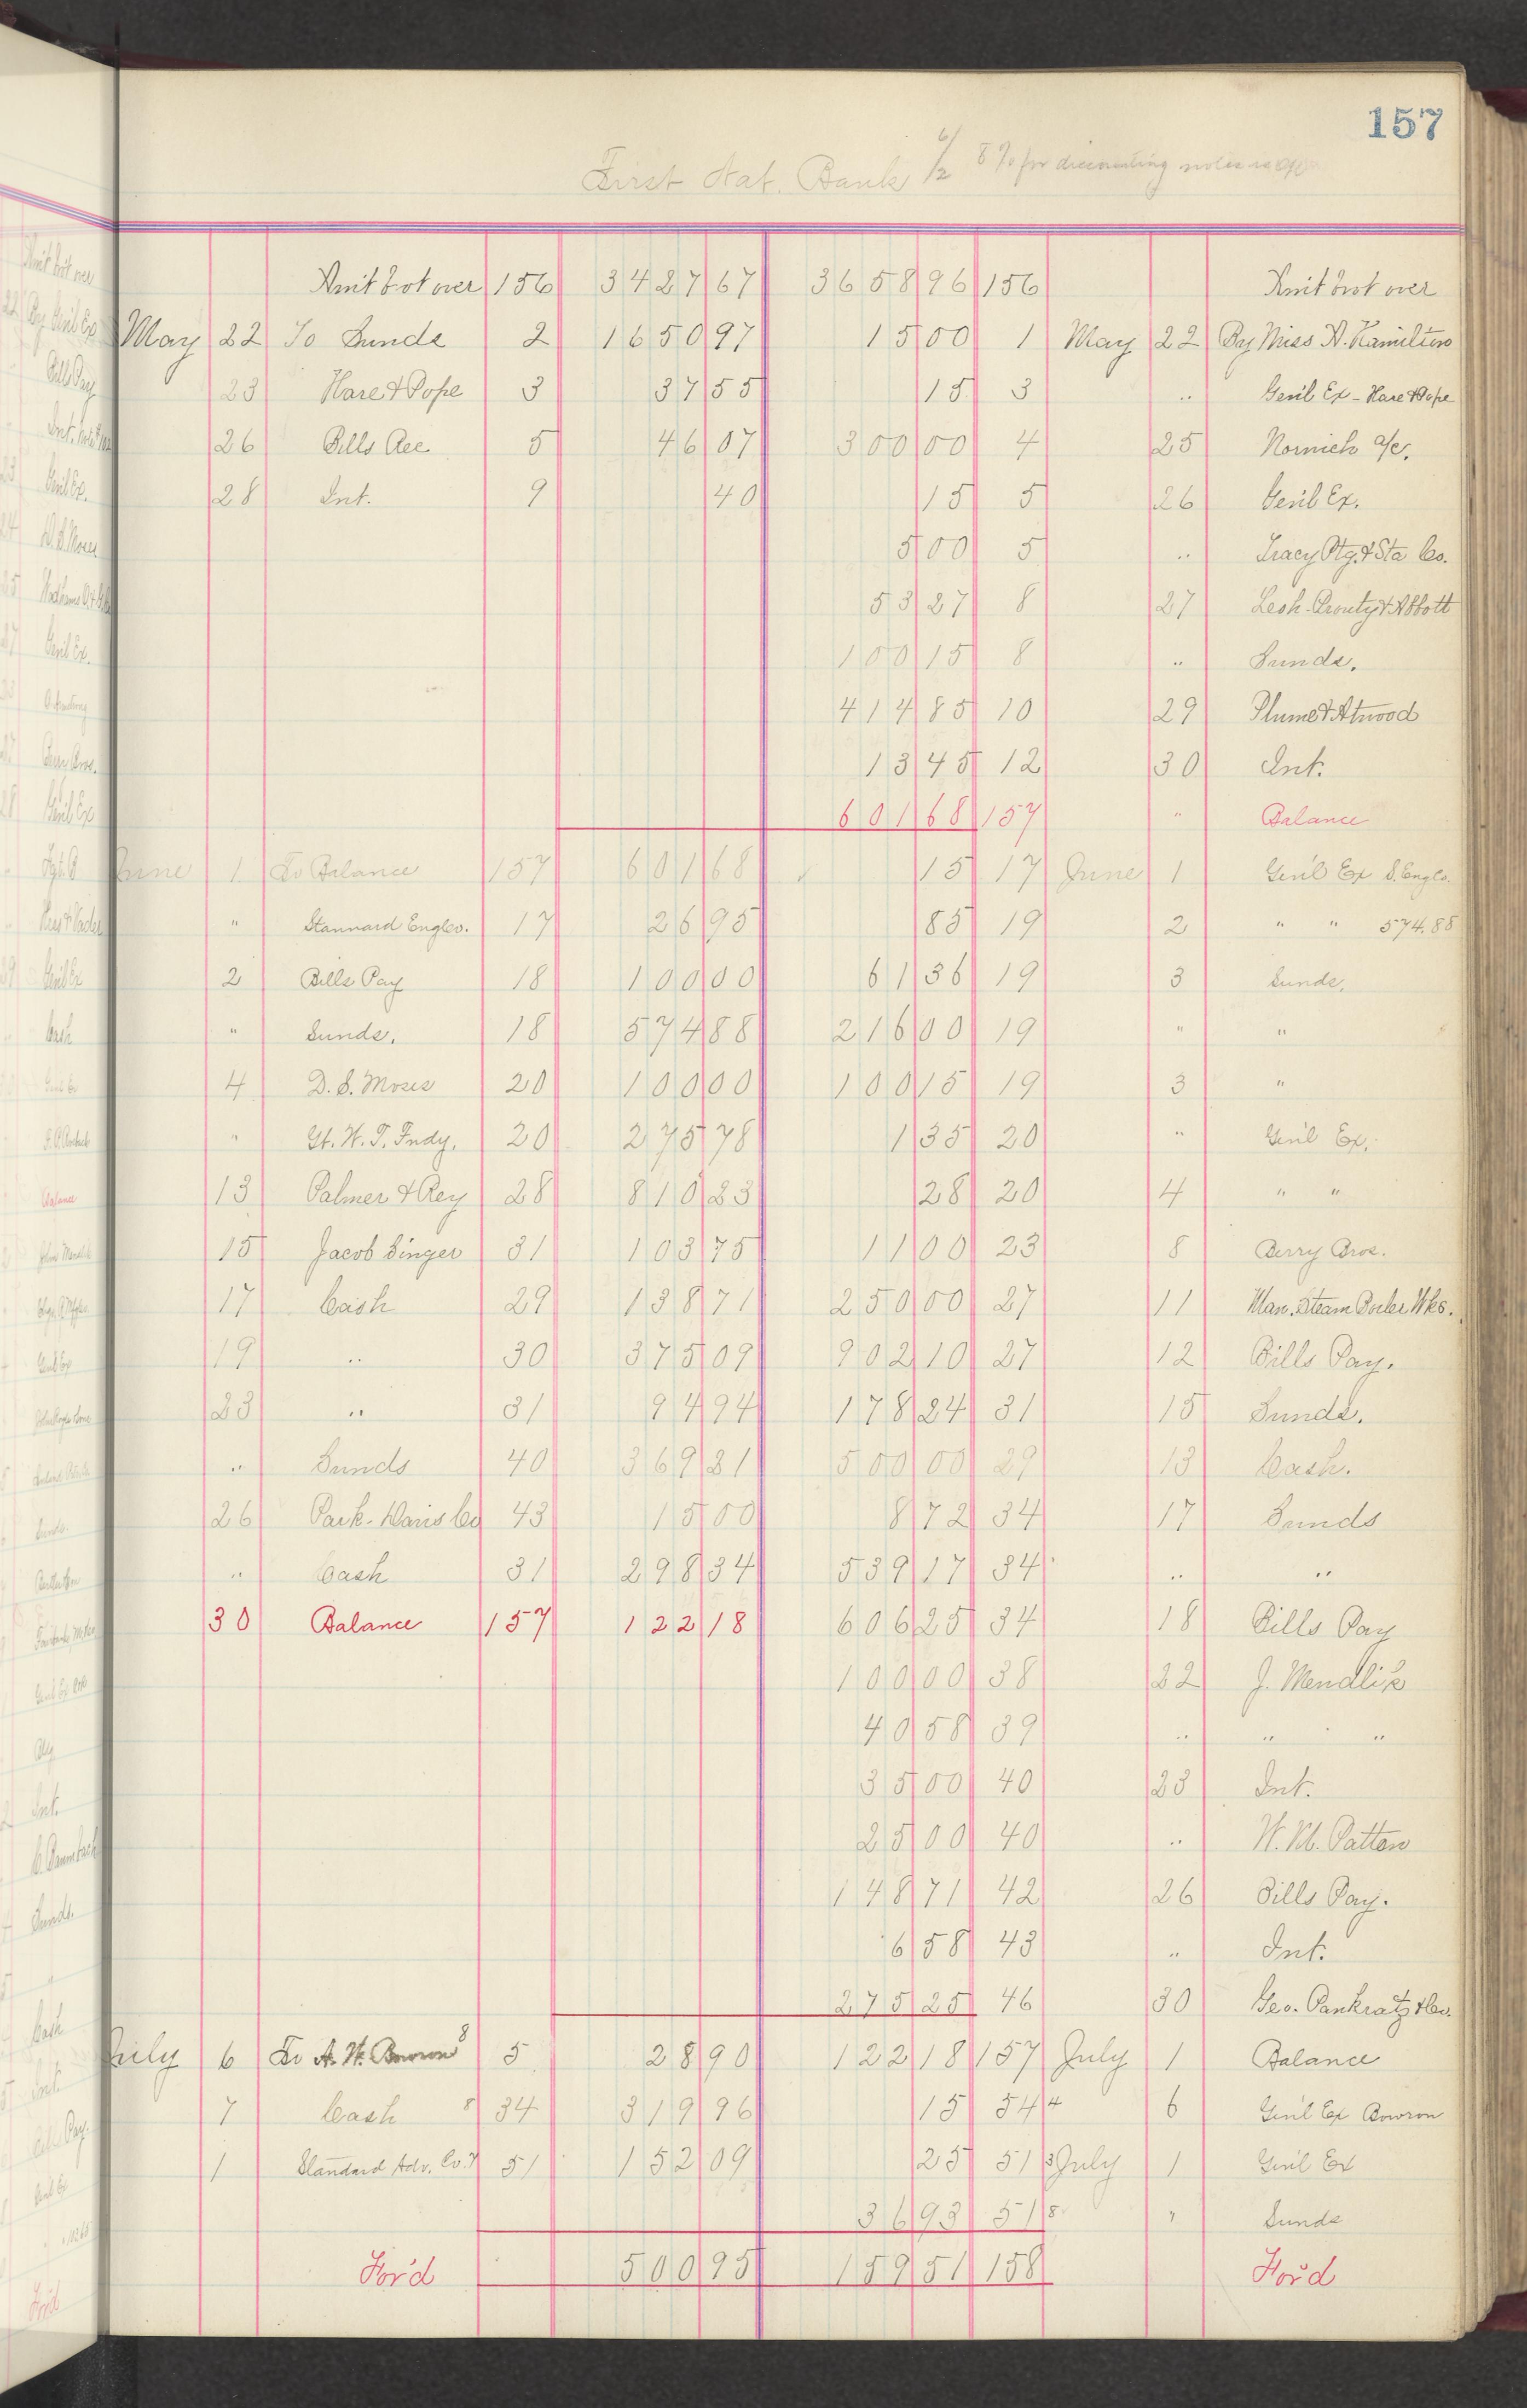 157
First Nat. Bank 6/2 8% for discounting notes
Am't bro't over 156 3427 67 3658 96 156 Am't bro't over
May 22 To Sunds 2 1650 97 15 00 1 May 22 By Miss A. Hamilton
23 Hare & Pope 3 37 55 15 3 " Gen'l Ex - Hare & Pope
26 Bills Rec 5 46 07 300 00 4 25 Norwich a/c.
28 Int. 9 40 15 5 26 Gen'l Ex.
5 00 5 " Tracy Ptg. & Sta Co.
53 27 8 27 Lesh-Prouty & Abbott
100 15 8 " Sunds.
414 85 10 29 Plume & Atwood
13 45 12 30 Int.
601 68 157 " Balance
June 1 To Balance 157 601 68 15 17 June 1 Gen'l Ex S. Eng Co.
" Stannard Eng Co. 17 26 95 85 19 2 " " 574.88
2 Bills Pay 18 100 00 61 36 19 3 Sunds,
" Sunds. 18 574 88 216 00 19 " "
4 D. S. Moses 20 100 00 100 15 19 3 "
" Gt. W. T. Fndy. 20 275 78 1 35 20 " Gen'l Ex.
13 Palmer & Rey 28 810 23 28 20 4 " "
15 Jacob Singer 31 103 75 11 00 23 8 Berry Bros.
17 Cash 29 138 71 250 00 27 11 Man. Steam Boiler Wks.
19 " 30 375 09 902 10 27 12 Bills Pay.
23 " 31 94 94 178 24 31 15 Sunds.
" Sunds 40 369 21 500 00 29 13 Cash.
26 Park-Davis Co 43 15 00 8 72 34 17 Sunds
" Cash 31 298 34 539 17 34 " "
30 Balance 157 122 18 606 25 34 18 Bills Pay
100 00 38 22 J. Mendlik
40 58 39 " " "
35 00 40 23 Int.
25 00 40 " W. M. Patton
148 71 42 26 Bills Pay.
6 58 43 " Int.
275 25 46 30 Geo. Pankratz & Co.
July 6 To A. W. Bowron 8 5 28 90 122 18 157 July 1 Balance
7 Cash 8 34 319 96 15 54 4 6 Gen'l Ex Bowron
1 Standard Adv. Co. 7 51 152 09 25 51 3 July 1 Gen'l Ex
36 93 51 8 " Sunds
For'd 500 95 159 51 158 For'd